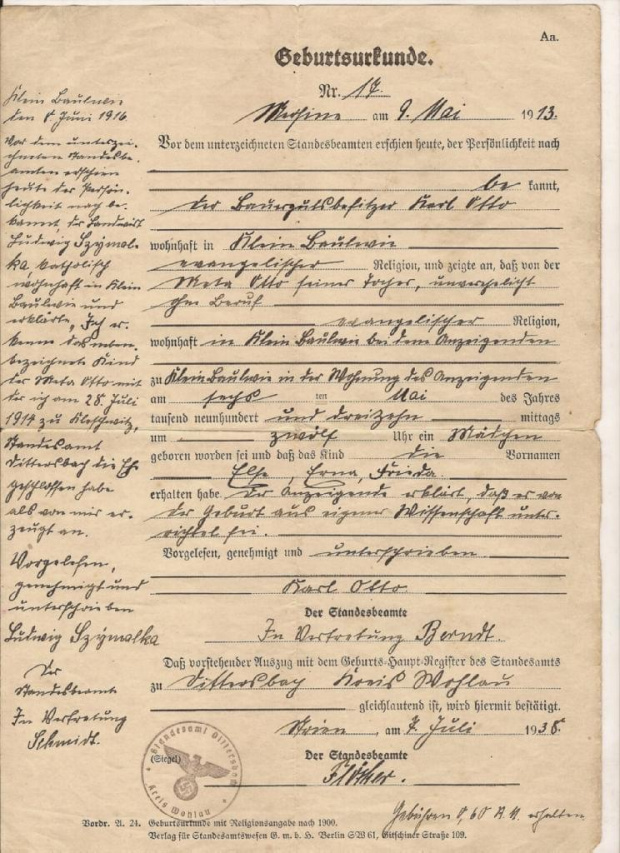 An.
Geburtsurkunde.
Nr. 17.
am 9. Mai 1913.
Vor dem unterzeichneten Standesbeamten erschien heute, der Persönlichkeit nach
be kannt,
der Bauergutsbesitzer Karl Otto
wohnhaft in Klein Baulwie
evangelischer Religion, und zeigte an, daß von der
Meta Otto seiner Tochter, unverehelicht
ohne Beruf
evangelischer Religion,
wohnhaft in Klein Baulwie bei dem Anzeigenden
zu Klein Baulwie in der Wohnung des Anzeigenden
am sechs ten Mai des Jahres
tausend neunhundert und dreizehn mittags
um zwölf Uhr ein Mädchen
geboren worden sei und daß das Kind die Vornamen
Else, Erna, Frieda
erhalten habe. Der Anzeigende erklärt, daß er von
der Geburt aus eigener Wissenschaft unter-
richtet sei.
Vorgelesen, genehmigt und unterschrieben
Karl Otto
Der Standesbeamte
In Vertretung Berndt.
Daß vorstehender Auszug mit dem Geburts-Haupt-Register des Standesamts
zu Dittersbach Kreis Wohlau
gleichlautend ist, wird hiermit bestätigt.
am 7. Juli 1938.
(Siegel)
Der Standesbeamte
Gebühren 0,60 R.M. erhalten
Vordr. A. 24. Geburtsurkunde mit Religionsangabe nach 1900.
Verlag für Standesamtswesen G. m. b. H. Berlin SW 61, Gitschiner Straße 109.
Klein Baulwie
den 8. Juni 1916
Vor dem unterzei-
chneten Standesbe-
amten erschien
heute der Persön-
lichkeit nach be-
kannt der Landwirt
Ludwig Szymal-
ka, katholisch
wohnhaft in Klein
Baulwie und
erklärte, Ich er-
kenne das neben-
bezeichnete Kind
der Meta Otto mit
der ich am 28. Juli
1914 zu
Standesamt
Dittersbach die Ehe
geschlossen habe
als von mir er-
zeugt an.
Vorgelesen,
genehmigt und
unterschrieben
Ludwig Szymalka
Der
Standesbeamte
In Vertretung
Schmidt.
Standesamt Dittersbach
Kreis Wohlau